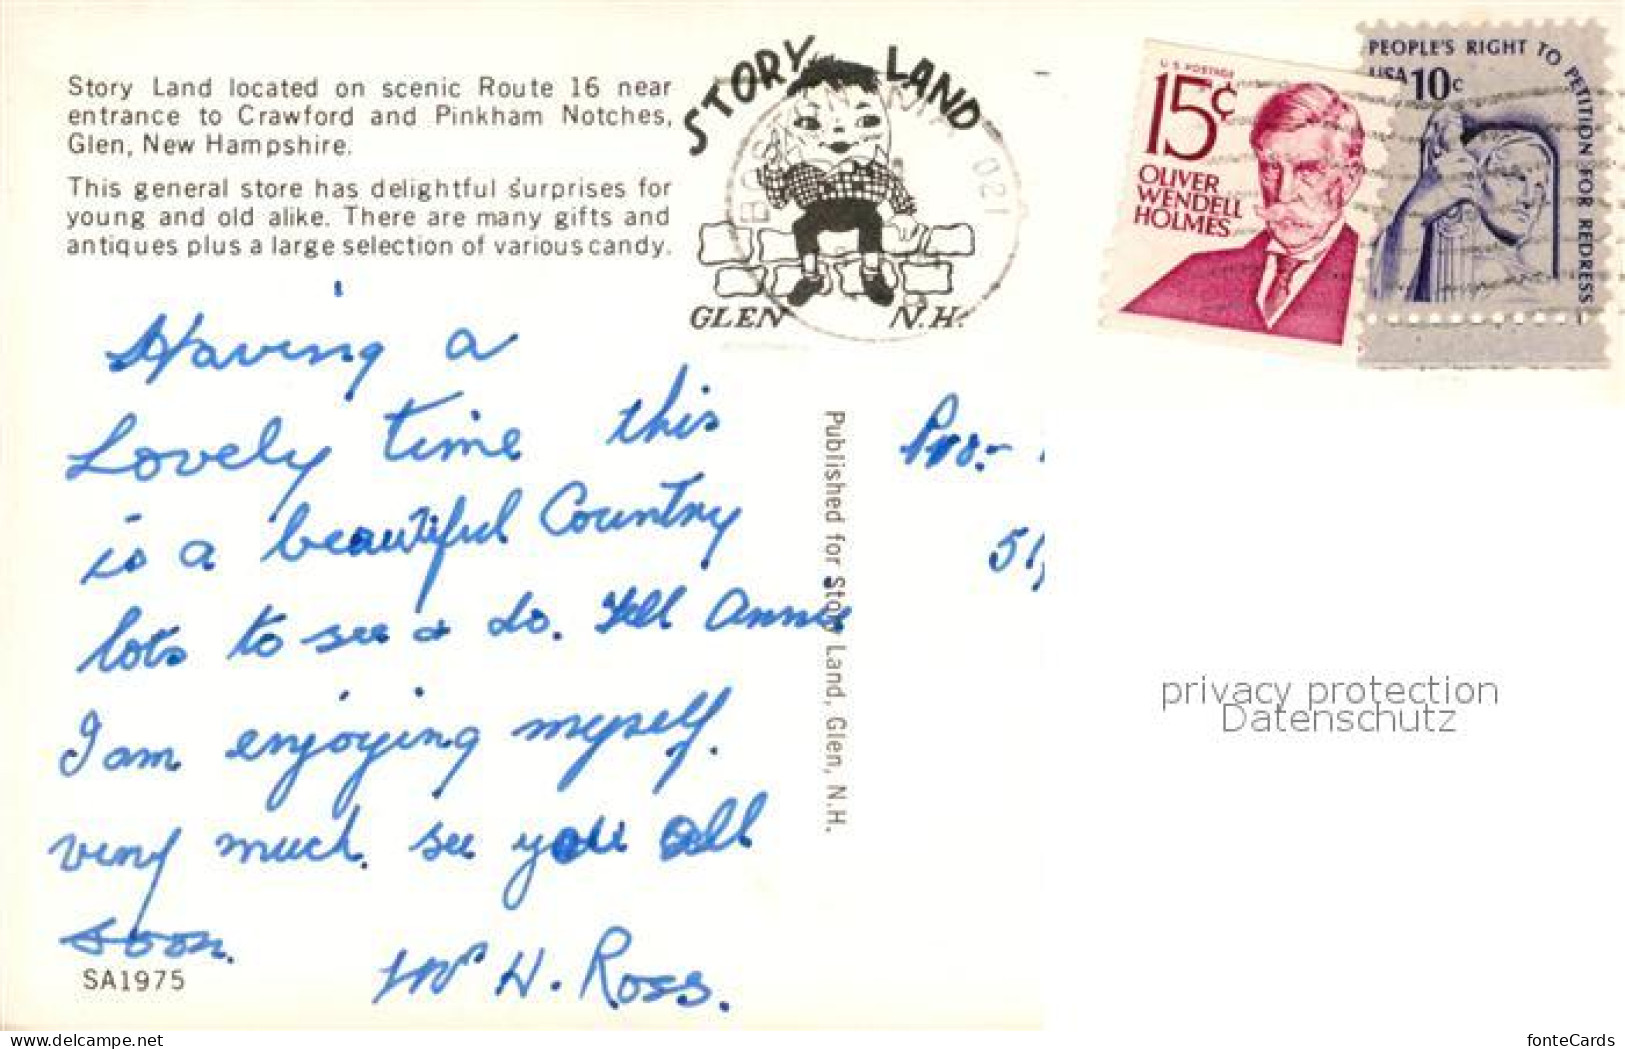 Story Land located on scenic Route 16 near
entrance to Crawford and Pinkham Notches,
Glen, New Hampshire.
This general store has delightful surprises for
young and old alike. There are many gifts and
antiques plus a large selection of various candy.
STORY LAND
GLEN N.H.
BOS
021
U.S. POSTAGE
15¢
OLIVER
WENDELL
HOLMES
PEOPLE'S RIGHT TO PETITION FOR REDRESS
USA 10c
Having a
Lovely time this
is a beautiful Country
lots to see & do. Tell Annie
I am enjoying myself.
very much. see you all
soon.
H. Ross.
SA1975
Published for Story Land, Glen, N.H.
51,
privacy protection
Datenschutz
www.delcampe.net
fonteCards